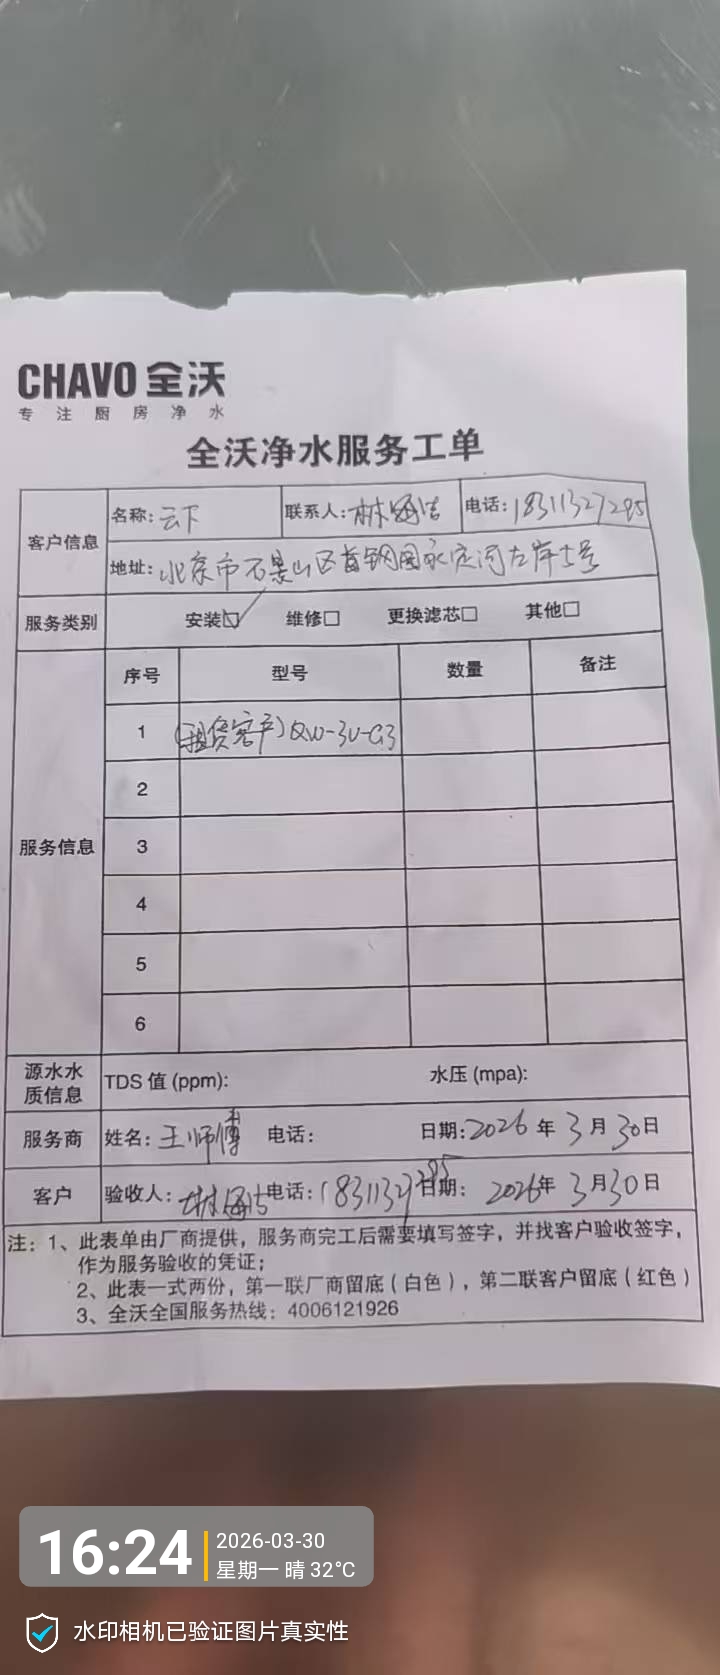 CHAVO 全沃
专注厨房净水
全沃净水服务工单
客户信息 名称: 云下 联系人: 林 洁 电话: 18311327295
地址: 北京市石景山区首钢园永定河左岸5号
服务类别 安装☑ 维修□ 更换滤芯□ 其他□
服务信息 序号 型号 数量 备注
1 (租赁客户) QW-3U-G3
2
3
4
5
6
源水水质信息 TDS 值 (ppm): 水压 (mpa):
服务商 姓名: 王师傅 电话: 日期: 2026 年 3 月 30 日
客户 验收人: 林 洁 电话: 18311327295 日期: 2026 年 3 月 30 日
注: 1、此表单由厂商提供，服务商完工后需要填写签字，并找客户验收签字，
作为服务验收的凭证；
2、此表一式两份，第一联厂商留底（白色），第二联客户留底（红色）
3、全沃全国服务热线: 4006121926
16:24 2026-03-30
星期一 晴 32℃
水印相机已验证图片真实性